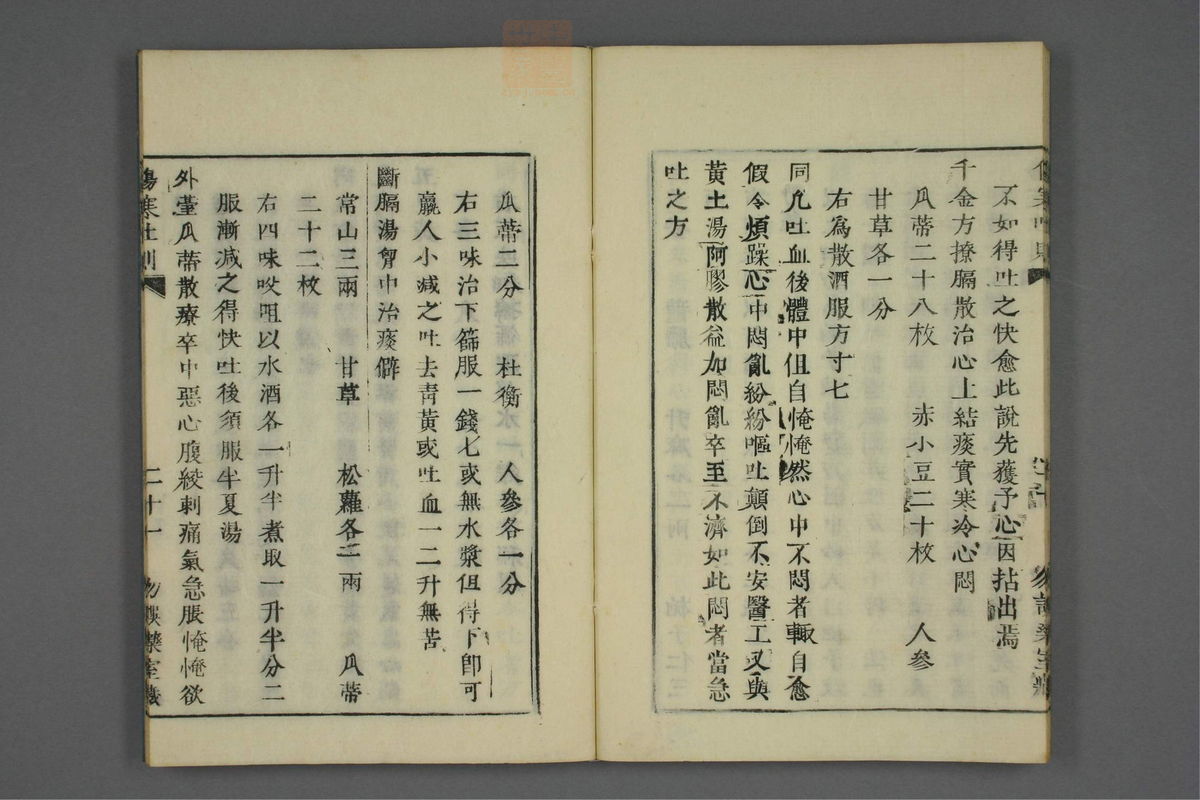 不如得吐之快愈此說先獲予心因拈出焉
千金方撩膈散治心上結痰實寒冷心悶
瓜蒂二十八枚 赤小豆二十枚 人參
甘草各一分
右為散酒服方寸七
同凡吐血後體中但自悗悗然心中不悶者輙自愈
假令煩躁心中悶亂紛紛嘔吐顛倒不安醫工又與
黃土湯阿膠散益加悶亂卒至不濟如此悶者當急
吐之方
瓜蒂二分 杜衡 人參各一分
右三味治下篩服一錢七或無水漿但得下卽可
羸人小減之吐去靑黃或吐血一二升無苦
斷膈湯胷中治痰僻
常山三兩 甘草 松蘿各二兩 瓜蒂
二十二枚
右四味㕮咀以水酒各一升半煮取一升半分二
服漸減之得快吐後須服半夏湯
外臺瓜蒂散療卒中惡心腹絞刺痛氣急脹悗悗欲
傷寒吐則 二十一 勿誤藥室藏